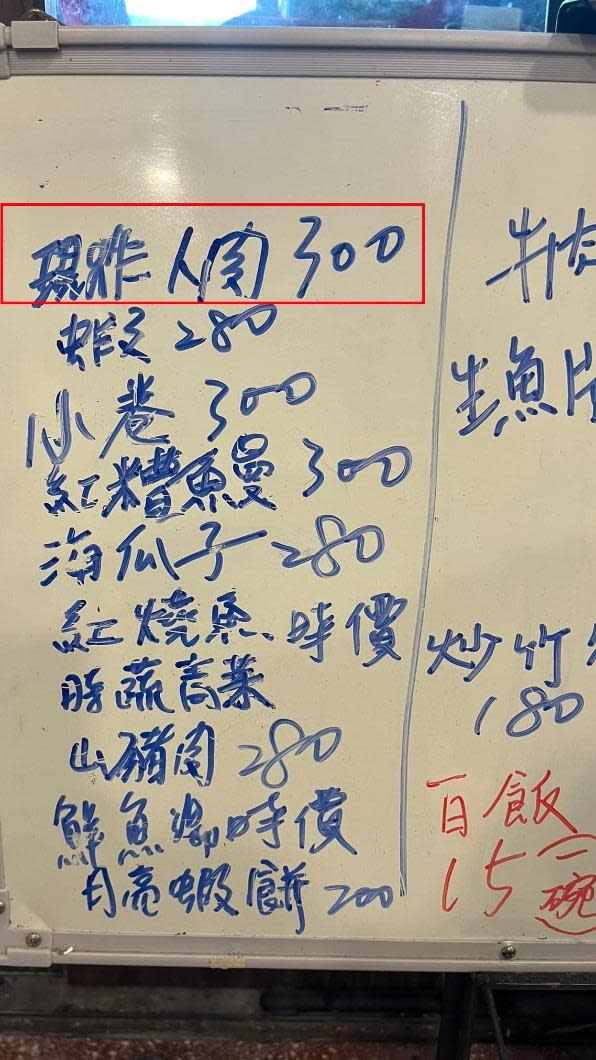 現炸人肉 300
蝦 280
小卷 300
紅糟鰻 300
海瓜子 280
紅燒魚 時價
時蔬高菜
山豬肉 280
鮮魚湯 時價
月亮蝦餅 200
牛肉
生魚片
炒竹
180
白飯
15 (一碗)